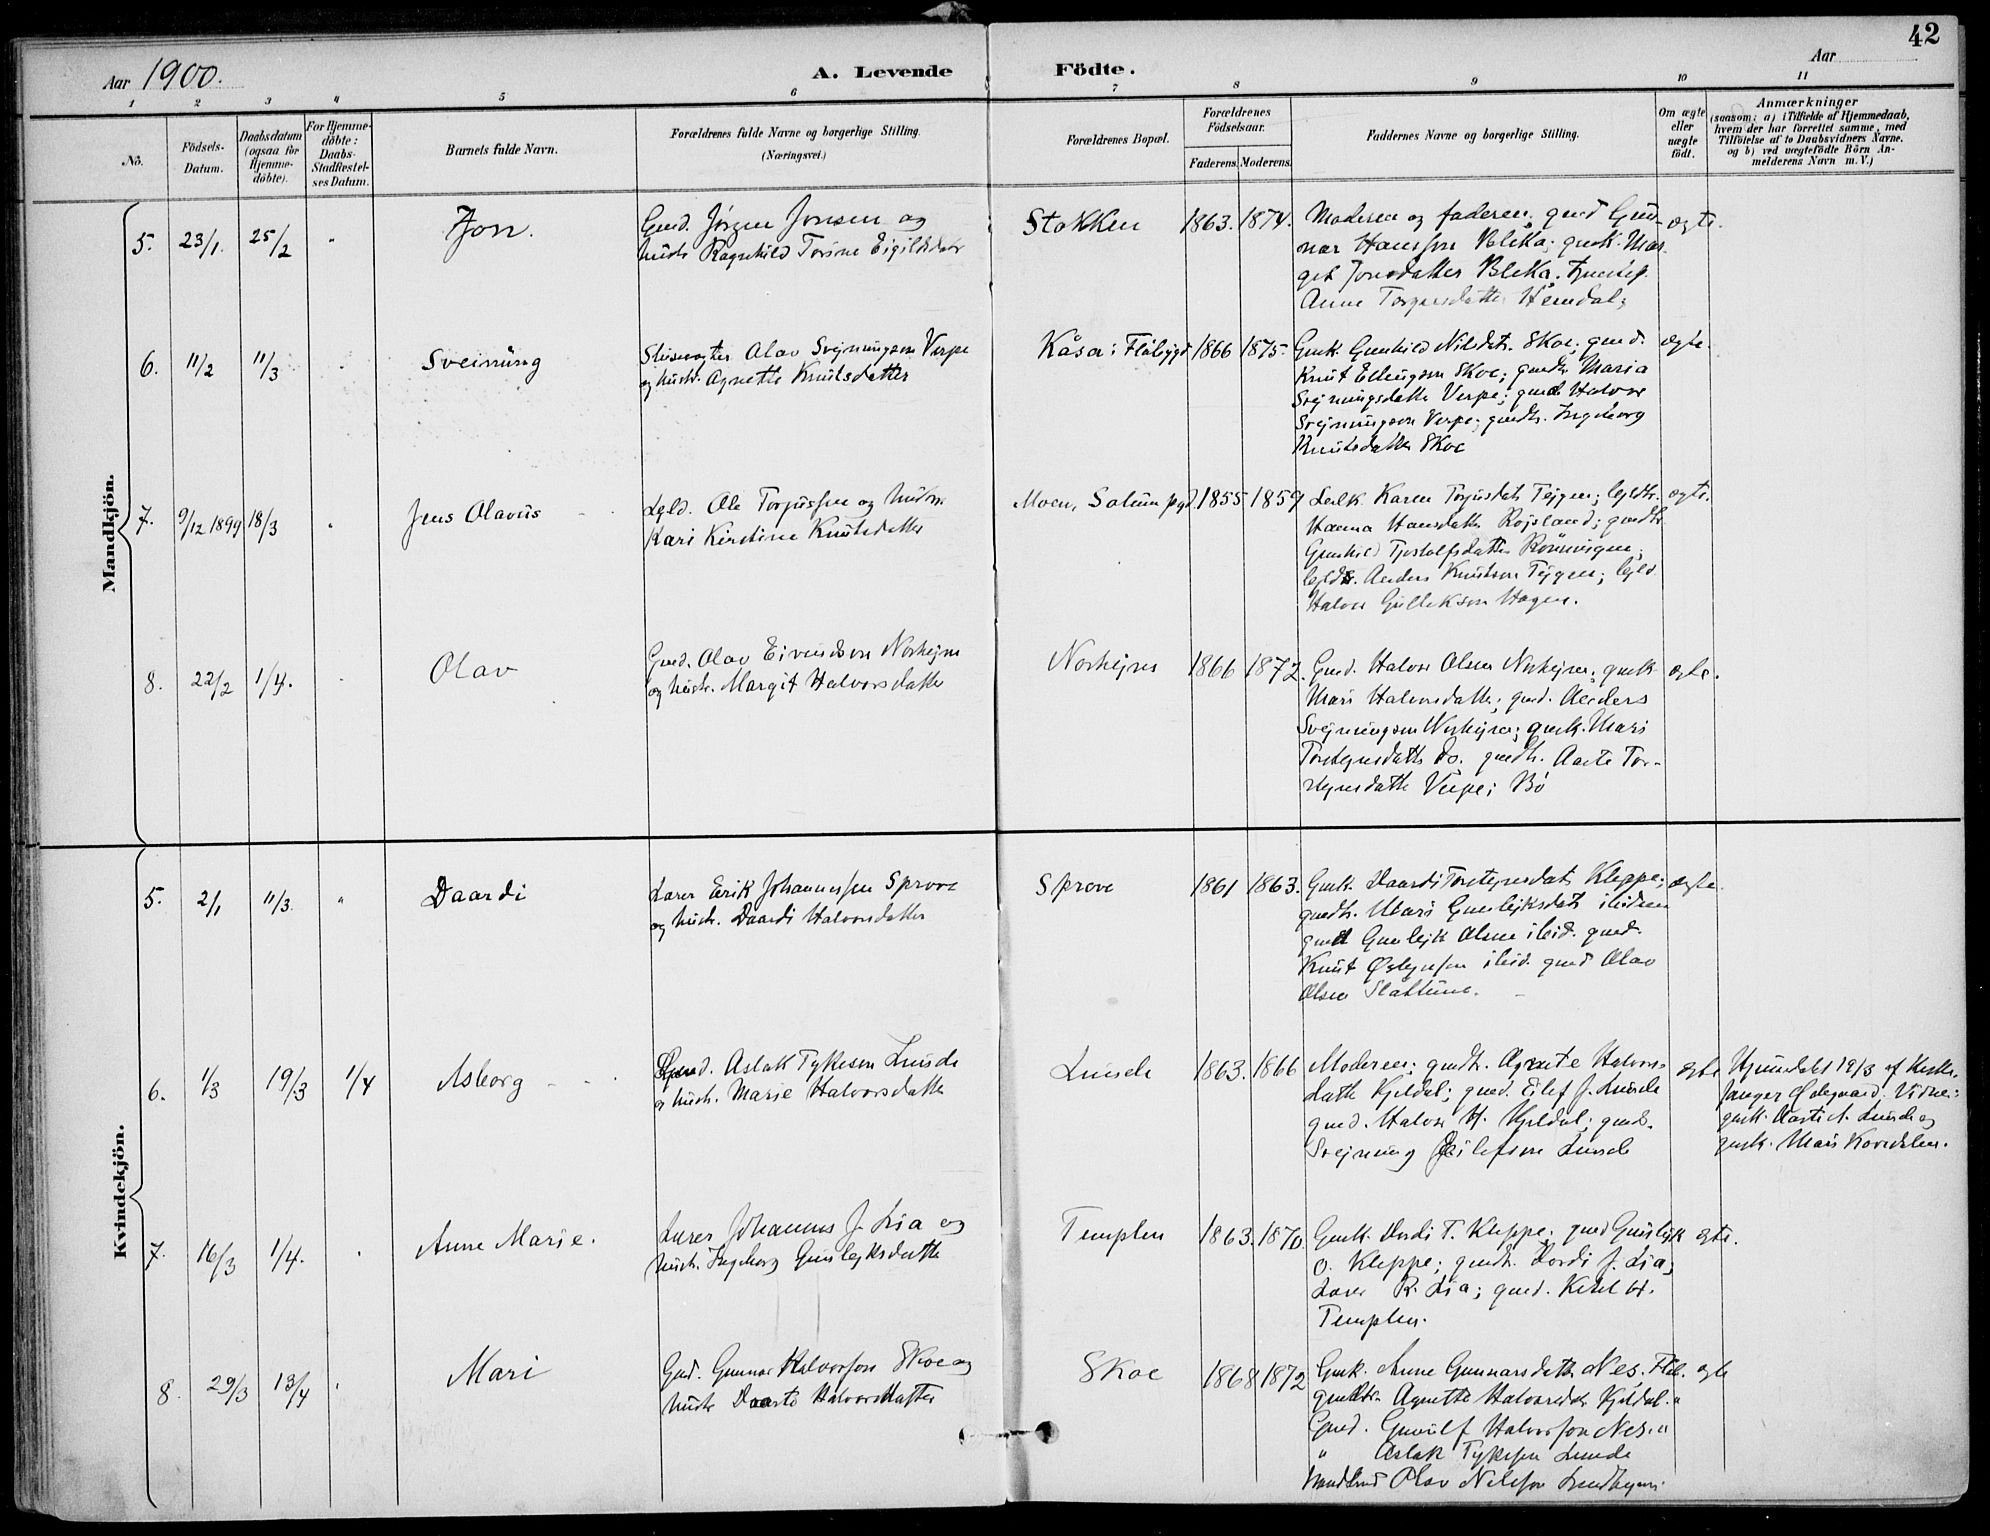 42
Aar 1900.
A. Levende Födte.
Aar
1 2 3 4 5 6 7 8 9 10 11
No.
Födsels-
Datum.
Daabsdatum
(ogsaa for
Hjemme-
döbte).
For Hjemme-
döbte:
Daabs-
Stadfæstel-
ses Datum.
Barnets fulde Navn.
Forældrenes fulde Navne og borgerlige Stilling.
(Næringsvei.)
Forældrenes Bopæl.
Forældrenes
Födselsaar.
Faderens. Moderens.
Faddernes Navne og borgerlige Stilling.
Om ægte
eller
uægte
födt.
Anmærkninger
(saasom: a) i Tilfælde af Hjemmedaab,
hvem der har forrettet samme, med
Tilföielse af to Daabsvidners Navne.
og b) ved uægtefödte Börn An-
melderens Navn m. V.)
Mandkjön.
5. 23/1. 25/2 " Jon.
Gmd. Jörgen Jonsen og
hustr Ragnhild Torine Eigilsdatr
Stokken 1863. 1874.
Moderen og faderen; gmd Gun-
nar Hansson Bleka; gmk. Mar-
git Jonsdatter Bleka.
Anne Torgersdatter Heimdal;
ægte.
6. 11/2 11/3 " Sveinung
Slusevogter Olav Svejnungson Verpe
og hustr. Agnette Knutsdatter
Kåsa i Flåbygd 1866 1875.
Gmk. Gunhild Nilsdtr. Skoe; gmd.
Knut Ellingson Skoe; gmdtr Maria
Svejnungsdatter Verpe; gmd Halvor
Svejnungson Verpe; gmdtr. Ingeborg
Knutsdatter Skoe
ægte.
7. 9/12 1899 18/3 " Jens Olavus
Lejld. Ole Torjussen og hustr.
Kari Kirstine Knutsdatter
Moen, Solum pgd. 1855 1859
Lejlk Karen Torjusdatr Tejgen; lejldtr.
Hanna Hansdatter Rojsland; gmdtr.
Gunhild Tjostolfsdatter Rönningen;
lejlds. Anders Knutson Tejgen; lejld.
Halvor Gullekson Hagen.
ægte.
8. 22/2 1/4. " Olav
Gmd. Olav Eivindson Norhejm
og hustr. Margit Halvorsdatter
Norhejm 1866 1872.
Gmd. Halvor Olsen Norhejm; gmk.
Mari Halvorsdatter; gmd. Anders
Svejnungson Norhejm; gmk. Mari
Torstejnsdatter do. gmdtr. Aaste Tor-
stejnsdatter Verpe; Bö
ægte.
Kvindekjön.
5. 2/1 11/3. " Daardi
Lærer Erik Johannessen Sprove
og hustr. Daardi Halvorsdatter
Sprove 1861 1863.
Gmk. Daardi Torstejnsdatr Kleppe;
gmdtr. Mari Gunlejksdatr ibidem
gmd Gunlejk Olsen ibid. gmd.
Knut Östejnsen ibid. gmd Olav
Olsen Slåttene.
ægte.
6. 1/3 19/3 1/4 Asborg
Gmd. Aslak Tykeson Lunde
og hustr. Marie Halvorsdatter
Lunde 1863. 1866
Moderen; gmdtr. Agnete Halvors-
datter Kjeldal; gmd. Eilef J. Lunde
gmd. Halvor H. Kjeldal; gmds.
Svejnung Eilefson Lunde
ægte
Hjemdöbt 19/3 af Kirke-
sanger Ödegaard. Vidner:
gmk. Aaste A. Lunde og
gmk. Mari Kovedalen.
7. 16/3 1/4. " Anne Marie.
Lærer Johannes J. Lia og
hustr. Ingeborg Gunlejksdatter
Templen 1863. 1870.
Gmk. Dordi T. Kleppe; gmd Gunlejk
O. Kleppe; gmdtr. Dordi J. Lia;
Lærer R. Lia; gmd. Kitel H.
Templen.
ægte.
8. 29/3 13/4 " Mari
Gmd. Gunnar Halvorson Skoe og
hustr Daarte Halvorsdatter
Skoe 1868 1872
Gmk. Anne Gunnarsdatter Nes. Flåb.
Gmdtr. Agnette Halvorsdtr Kjeldal. "
Gmd. Gunulf Halvorson Nes. "
" Aslak Tykeson Lunde
Olav Nelson
ægte